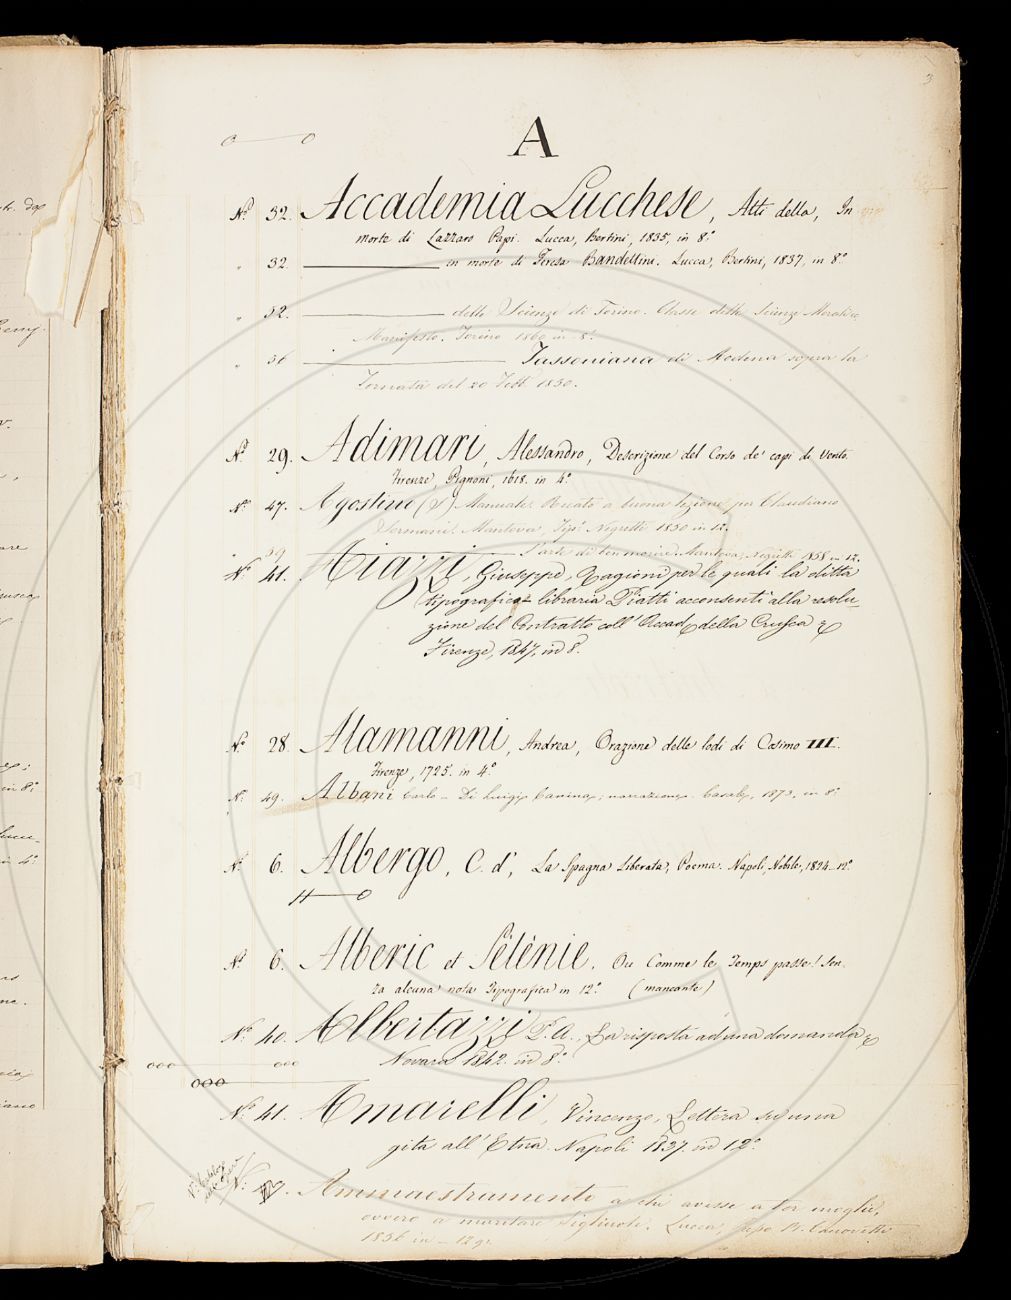 3
A
N.º 32. Accademia Lucchese, Atti della, In
morte di Lazzaro Papi. Lucca, Bertini, 1835, in 8.º
" 32. in morte di Teresa Bandettini. Lucca, Bertini, 1837, in 8.º
" 52. delle Scienze di Torino. Classe delle Scienze Morali &
Manifesto. Torino 1860 in 8.º
" 56 Tassoniana di Modena sopra la
Tornata del 20 Febb. 1850.
N.º 29. Adimari, Alessandro, Descrizione del Corso de' capi di Vento.
Firenze, Pignoni, 1618. in 4.º
N.º 47. Agostino (S) Manuale. Recato a buona lezione per Claudiano
Mantova, Tip. Negretti 1850 in 12.
" 59 L'arte di ben morire Mantova, Negretti 1858 in 12.
N.º 41. Aiazzi, Giuseppe, Ragioni per le quali la ditta
tipografica libraria Piatti acconsentì alla resolu-
zione del Contratto coll' Accad. della Crusca &
Firenze, 1847, in 8.
N.º 28. Alamanni, Andrea, Orazione delle lodi di Cosimo III.
Firenze, 1725. in 4.º
N.º 49. Albani Carlo - Di Luigi Canina, narrazione. Casale, 1873, in 8.º
N.º 6. Albergo, C. d', La Spagna Liberata, Poema. Napoli, Nobile, 1824. 12.º
N.º 6. Alberic et Sélénie. Ou Comme le Temps passe! Sen-
za alcuna nota Tipografica in 12.º (mancante)
N.º 40. Albertazzi P. A., La risposta ad una domanda &
Novara 1842. in 8.º
N.º 41. Amarelli, Vincenzo, Lettera su una
gita all' Etna. Napoli 1837. in 12.º
N.º Ammaestramento a chi avesse a tor moglie,
ovvero a maritare figliuole. Lucca, Canovetti
1856 in - 12.º